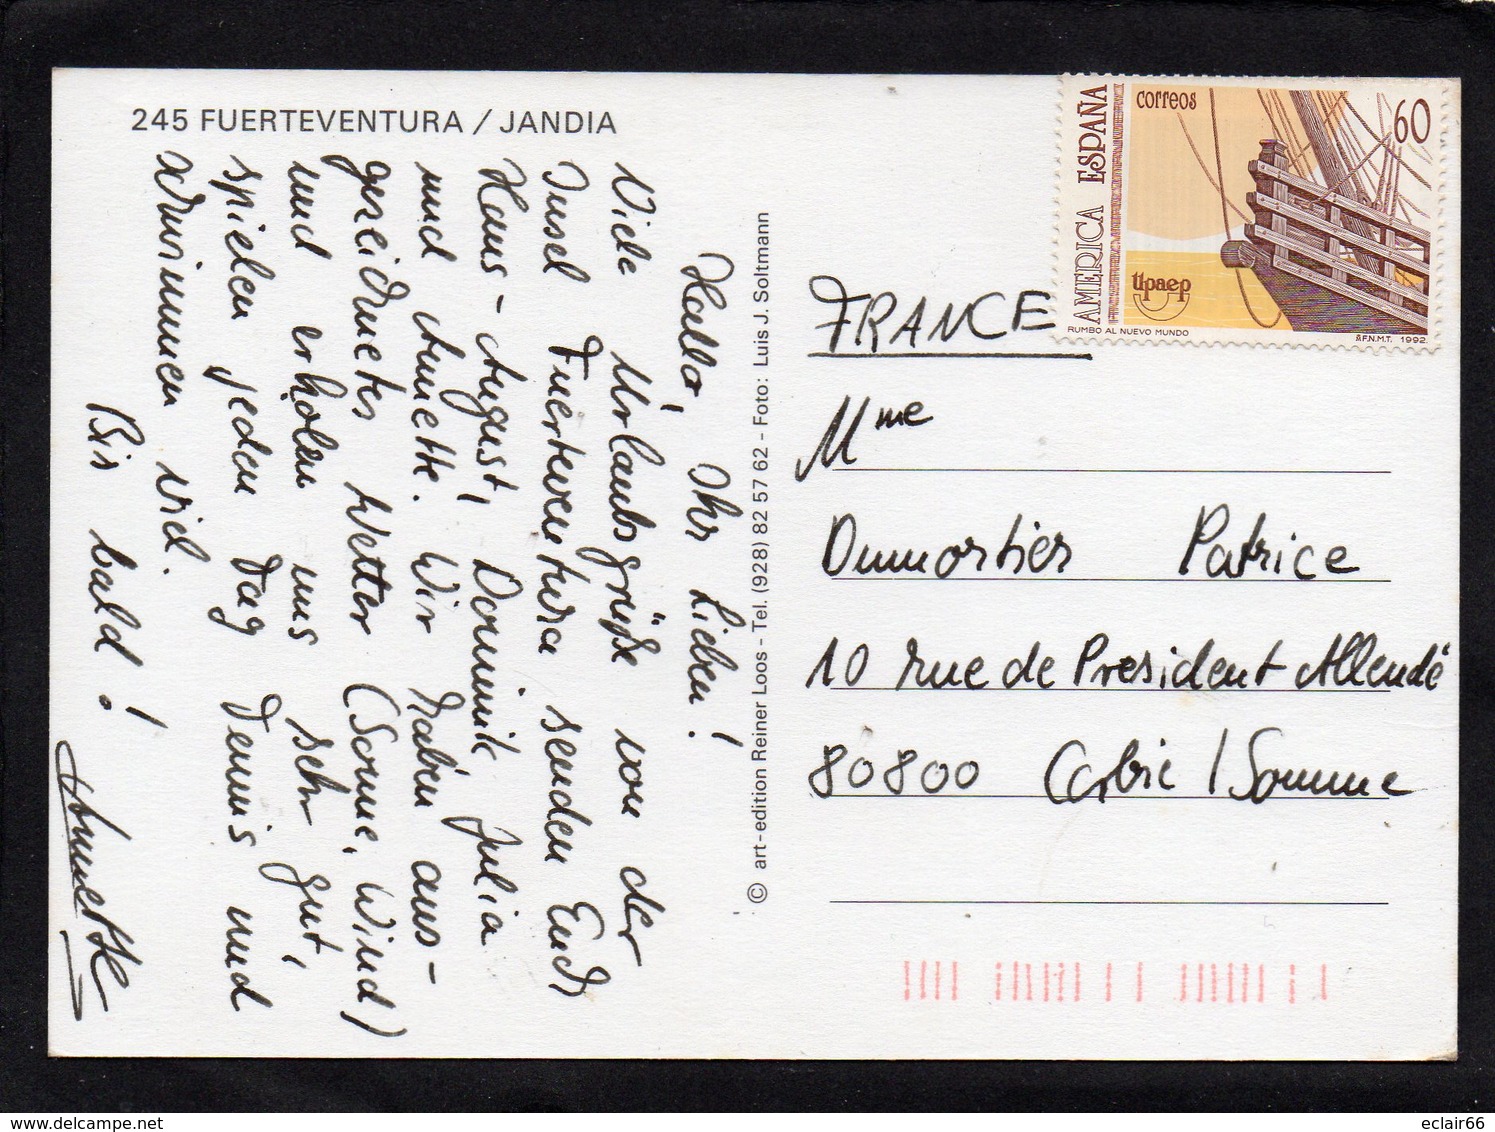 245 FUERTEVENTURA / JANDIA
Hallo, Ihr Lieben!
Viele Urlaubsgrüße von der
Insel Fuerteventura senden Euch
Hans-August, Dominik, Julia
und Annette. Wir haben aus-
gezeichnetes Wetter (Sonne, Wind)
und erholen uns sehr gut,
spielen jeden Tag Tennis und
schwimmen viel.
Bis bald!
Annette
© art-edition Reiner Loos - Tel. (928) 82 57 62 - Foto: Luis J. Soltmann
AMERICA ESPAÑA
correos
60
Upaep
RUMBO AL NUEVO MUNDO
F.N.M.T. 1992
FRANCE
Mme
Dumortier Patrice
10 rue de President Allendé
80800 Corbie / Somme
eclair66